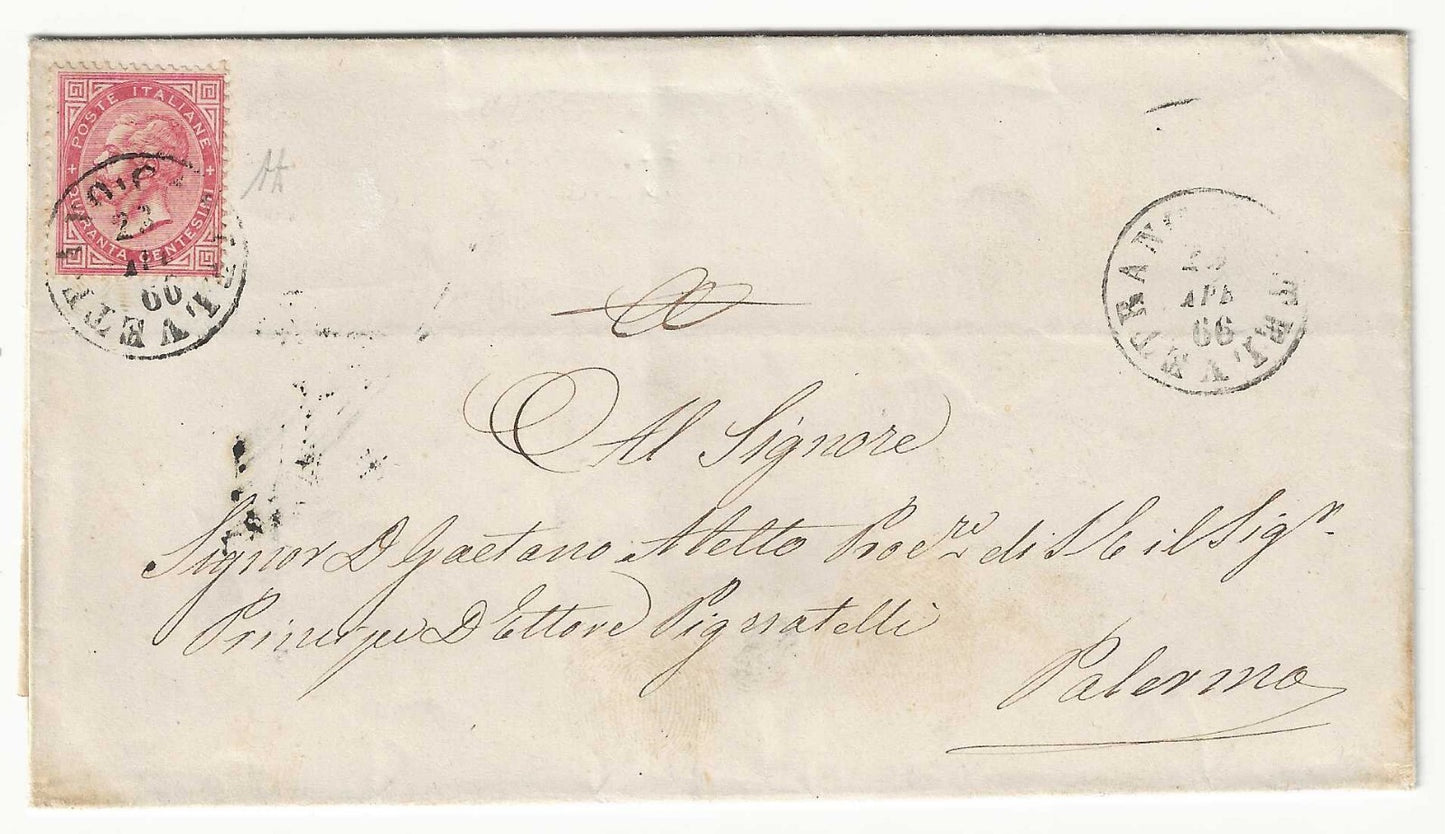 POSTE ITALIANE
QUARANTA CENTESIMI
22
66
APR
66
Al Signore
Signor D Gaetano Proc.re di S E il Sigr.
Principe D Ettore Pignatelli
Palermo